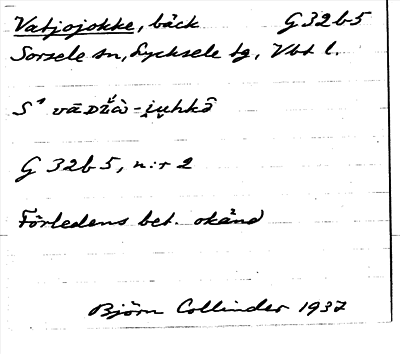 Vatjojokke, bäck G 32 b 5
Sorsele sn, Lycksele tg, Vbt l.
S¹ vāᴅžà-i̯ųhkō
G 32 b 5, n:r 2
Förledens bet. okänd
Björn Collinder 1937